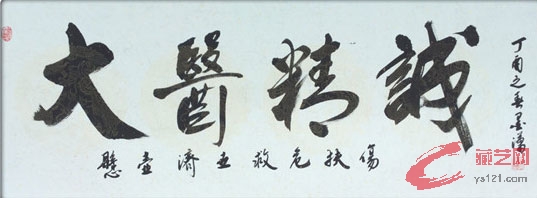 大醫精誠
懸壺濟世救危扶傷
丁酉之春墨濤
藏艺网
ys121.com